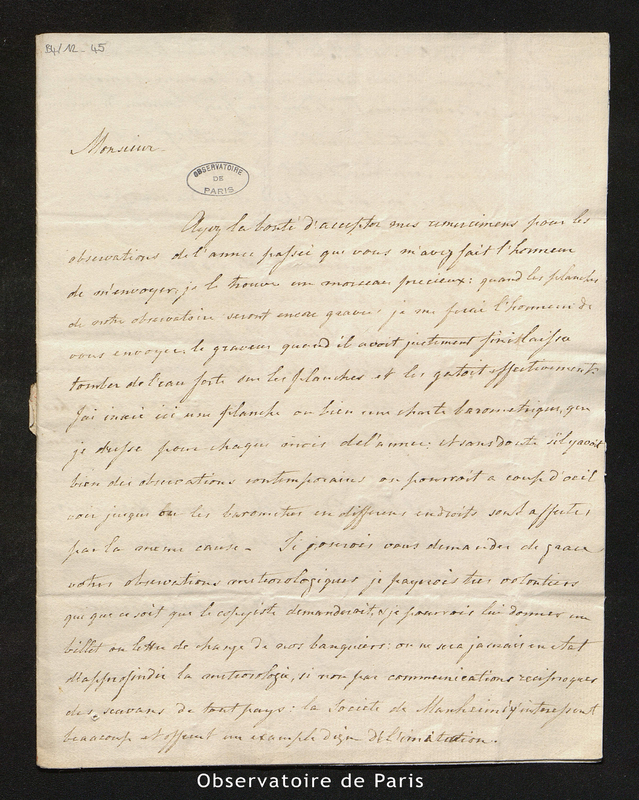 B4/12-45
Monsieur
OBSERVATOIRE
DE
PARIS
Ayez la bonté d'accepter mes remercimens pour les
observations de l'année passée que vous m'avez fait l'honneur
de m'envoyer, je le trouve un morceau precieux: quand les planches
de notre observatoire seront encore gravés je me ferai l'honneur de
vous envoyer, le graveur quand il avoit justement fini laissa
tomber de l'eau forte sur les planches et les gatoit effectivement.
J'ai ici une planche ou bien une charte barometrique, que
je dresse pour chaque mois de l'annee: et sans doute s'il y avoit
bien des observations contemporaires on pourroit a coup d'oeil
voir jusques ou les barometres en differens endroits sont affectés
par la meme cause - Si j'osois vous demander de grace
votres observations meteorologiques je payerois tres volontiers
qui que ce soit que le copyiste demanderoit, & je pourrois lui donner un
billet ou lettre de change de nos banquiers: on ne sera jamais en etat
d'approfondir la meteorologie, si non par communications reciproques
des scavans de tout pays: la Societe de Manheim s'y interessent
beaucoup et offrent un example digne de l'imitation.
Observatoire de Paris